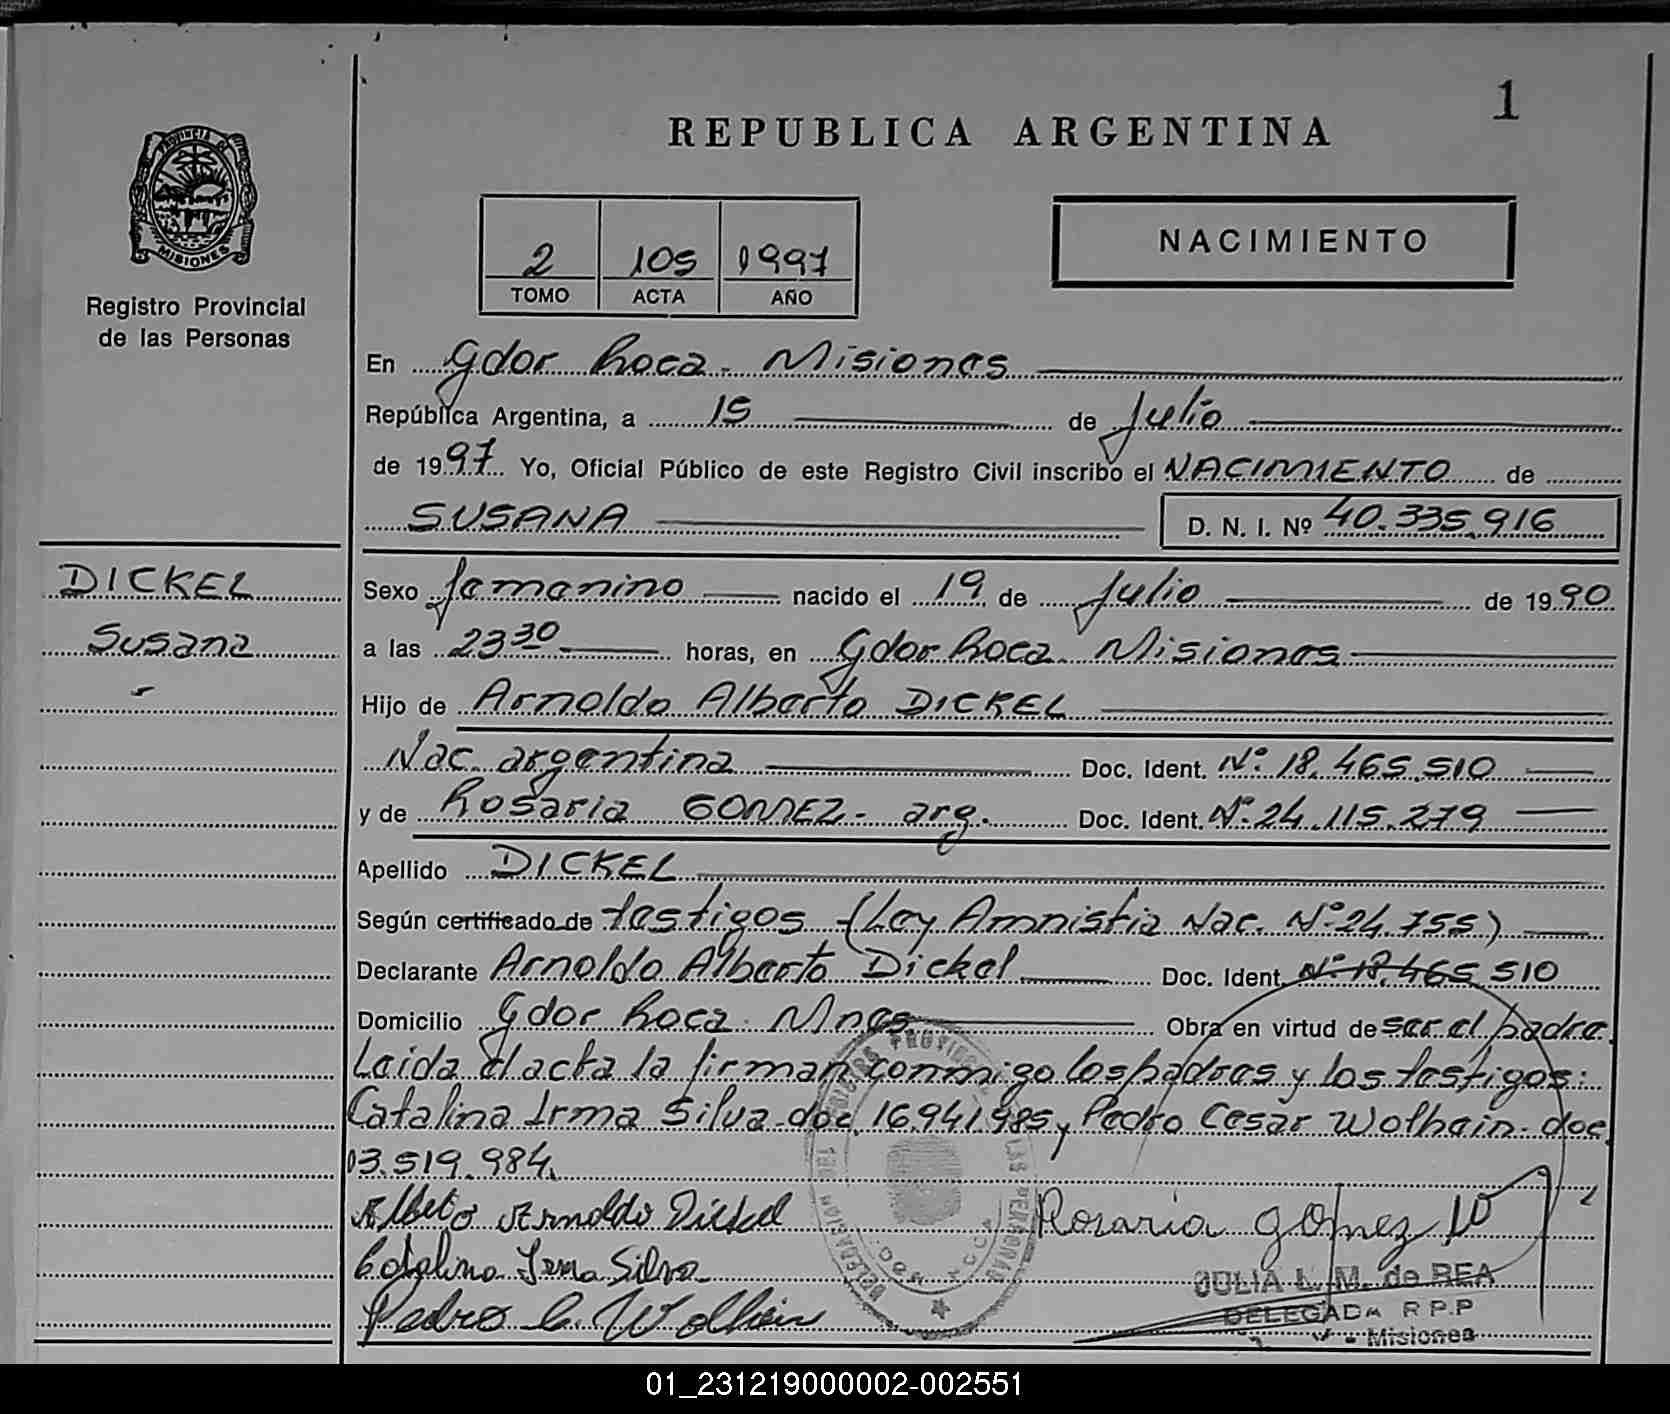 1
REPUBLICA ARGENTINA
PROVINCIA DE
MISIONES
Registro Provincial
de las Personas
2 105 1997
TOMO ACTA AÑO
NACIMIENTO
En Gdor Roca - Misiones
República Argentina, a 15 de Julio
de 1997 Yo, Oficial Público de este Registro Civil inscribo el NACIMIENTO de
SUSANA D. N. I. Nº 40.335.916
DICKEL
Susana
Sexo femenino nacido el 19 de Julio de 1990
a las 23 30 horas, en Gdor Roca Misiones
Hijo de Arnoldo Alberto DICKEL
Nac. argentina Doc. Ident. Nº 18.465.510
y de Rosaria GOMEZ - arg. Doc. Ident. Nº 24.115.279
Apellido DICKEL
Según certificado de testigos (Ley Amnistia Nac. Nº 24.755)
Declarante Arnoldo Alberto Dickel Doc. Ident. Nº 18.465.510
Domicilio Gdor Roca. Mnes Obra en virtud de ser el padre.
Leida el acta la firman conmigo los padres y los testigos:
Catalina Irma Silva doc. 16.941.985 y Pedro Cesar Wolhein - doc.
13.519.984.
Alberto Arnoldo Dickel Rosaria gomez
Catalina Irma Silva
Pedro C. Wolhein
JULIA L. M. de REA
DELEGADA R.P.P
- Misiones
01_231219000002-002551